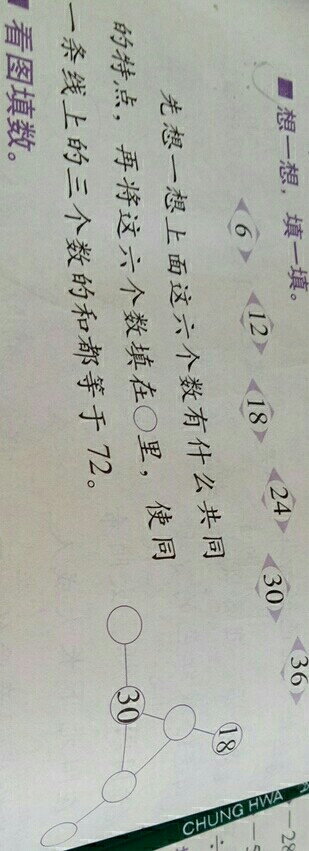 ■ 想一想，填一填。
6 12 18 24 30 36
先想一想上面这六个数有什么共同
的特点，再将这六个数填在○里，使同
一条线上的三个数的和都等于 72。
18
30
看图填数。
CHUNG HWA